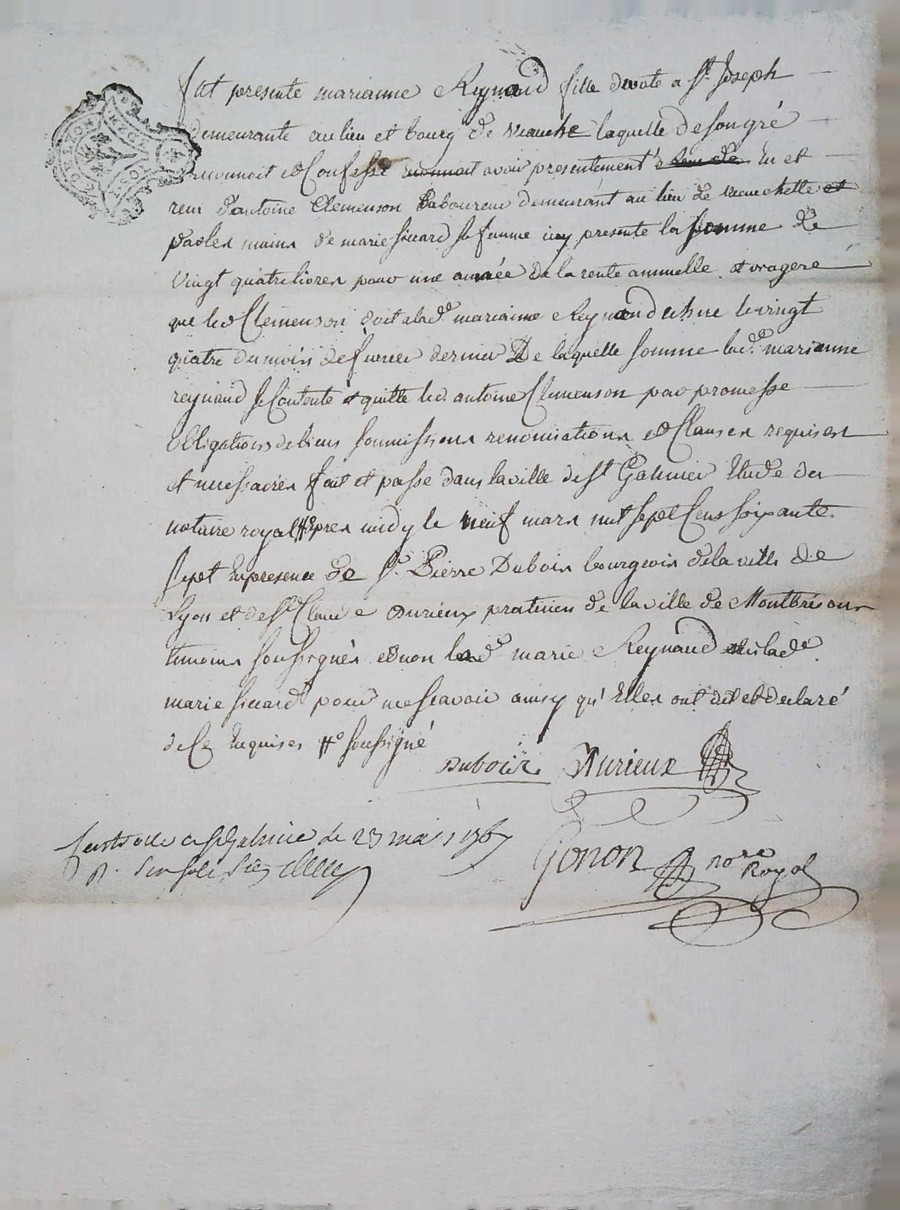 fut presente marianne Reynaud fille devote a St. Joseph
demeurante au lieu et bourg de veauche laquelle de son gré
reconnoit et Confesse avoir presentement Eu et
reçu d'antoine Clemenson Laboureur demeurant au lieu de veauchette et
par les mains de marie sicard sa femme icy presente la somme de
vingt quatre livres pour une année de la rente annuelle et viagere
que led Clemenson doit a lade marianne Reynaud echue le vingt
quatre du mois de fevrier dernier De laquelle somme lad.e marianne
reynaud se Contente et quitte led antoine Clemenson par promesse
obligations de biens soumissions renonciations et Clauses requises
et necessaires fait et passé dans la ville de St Galmier Etude du
notaire royal apres midy le neuf mars mil sept Cens soixante
sept En presence de Sr. Pierre Dubois bourgeois de la ville de
Lyon et de Sr Claude Durieux praticien de la ville de Montbrison
temoins soussignés et non lade marie Reynaud ni lade
marie sicard pour ne scavoir ainsy qu'Elles ont dit et declaré
de Ce Enquises soussigné
Dubois Durieux
Controllé a St Galmier le 23 mars 1767
R. Gonon nore
Royal